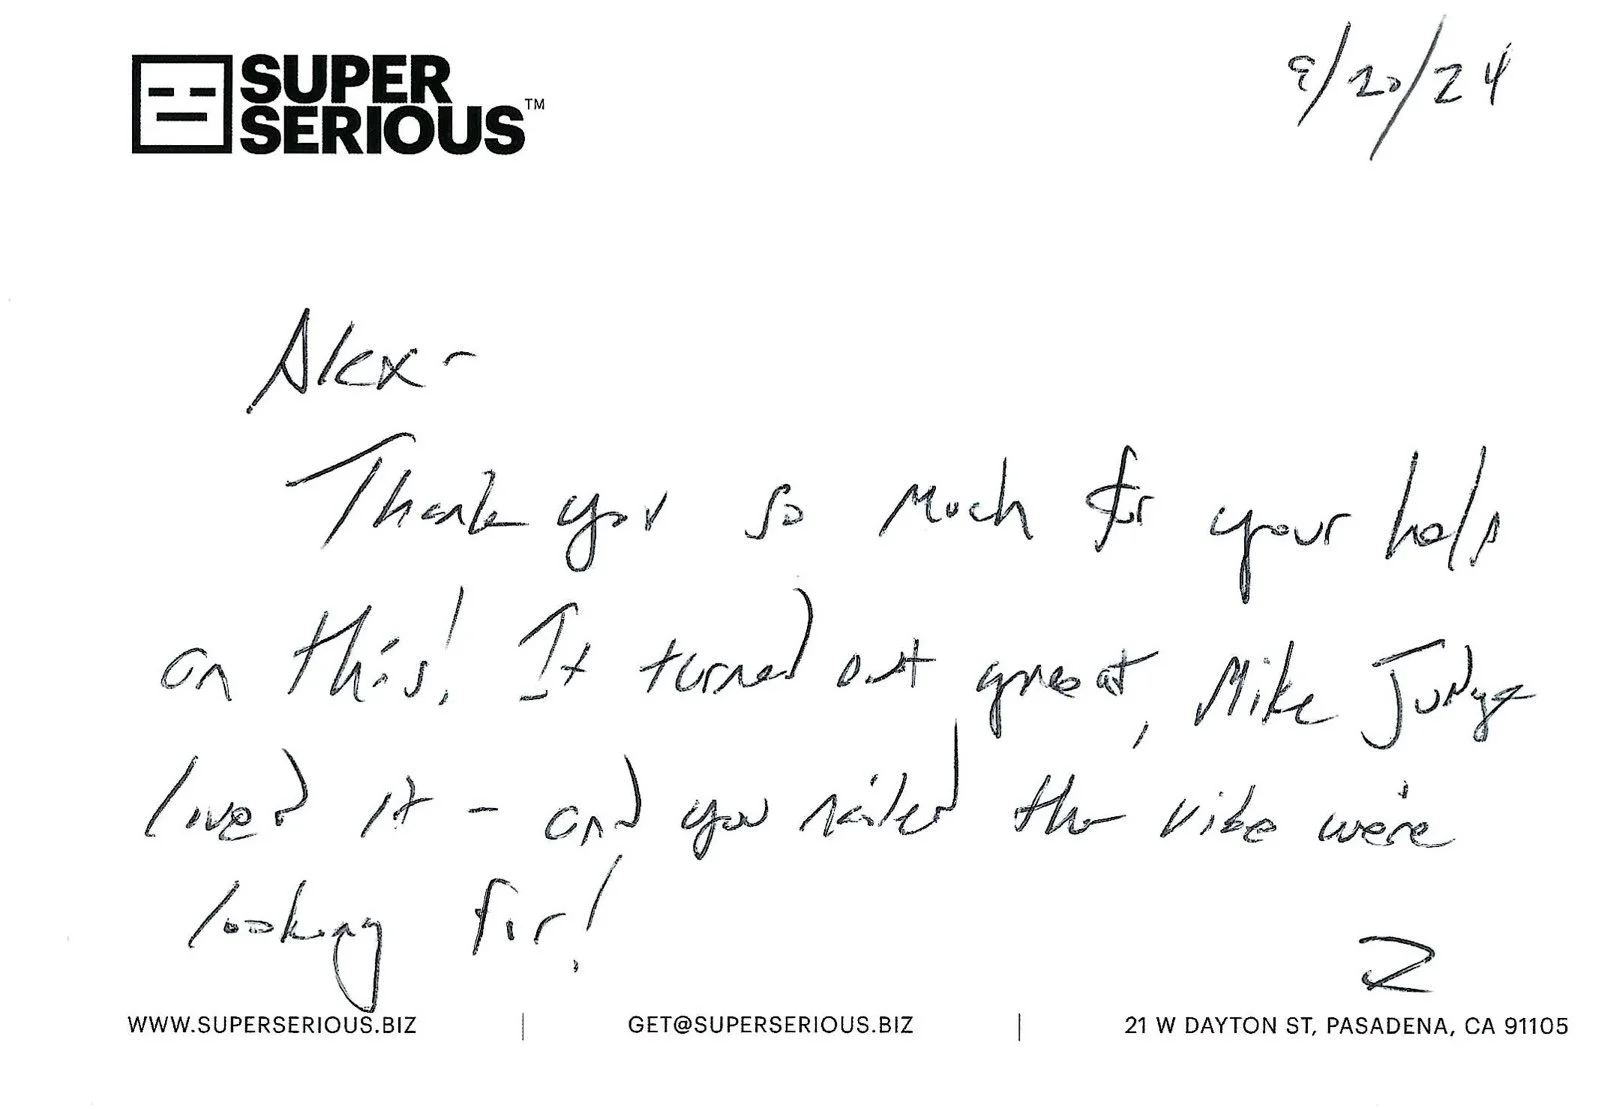 SUPER
SERIOUS™
9/20/24
Alex-
Thank you so much for your help
on this! It turned out great, Mike Judge
loved it - and you nailed the vibe we're
looking for!
Z
WWW.SUPERSERIOUS.BIZ | GET@SUPERSERIOUS.BIZ | 21 W DAYTON ST, PASADENA, CA 91105